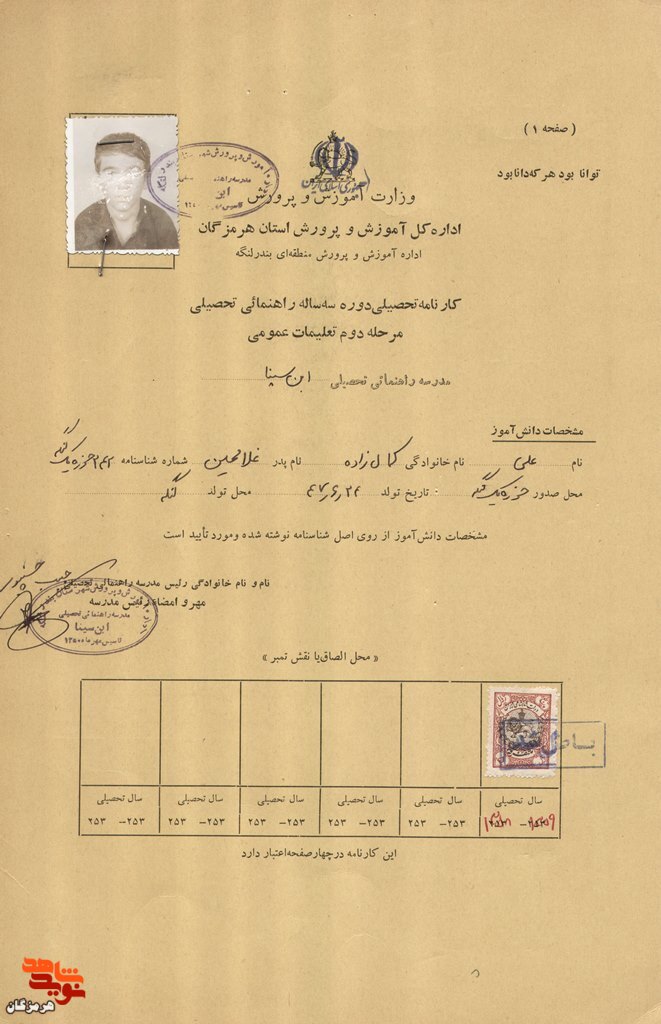 ( صفحه ۱ )
توانا بود هر که دانا بود
جمهوری اسلامی ایران
وزارت آموزش و پرورش
اداره کل آموزش و پرورش استان هرمزگان
اداره آموزش و پرورش منطقه‌ای بندرلنگه
کارنامه تحصیلی دوره سه ساله راهنمائی تحصیلی
مرحله دوم تعلیمات عمومی
مدرسه راهنمائی تحصیلی ابن سینا
مشخصات دانش آموز
نام علی نام خانوادگی کمال زاده نام پدر غلامحسین شماره شناسنامه
محل صدور حوزه یک لنگه : تاریخ تولد ۴۷٫۶٫۲۴ محل تولد لنگه
مشخصات دانش‌آموز از روی اصل شناسنامه نوشته شده و مورد تأیید است
نام و نام خانوادگی رئیس مدرسه راهنمائی تحصیلی
مهر و امضاء رئیس مدرسه
مدرسه راهنمائی تحصیلی
ابن سینا
تاسیس مهر ماه ۱۳۵۰
« محل الصاق یا نقش تمبر »
سال تحصیلی سال تحصیلی سال تحصیلی سال تحصیلی سال تحصیلی سال تحصیلی
۲۵۳ –۲۵۳ ۲۵۳ –۲۵۳ ۲۵۳ –۲۵۳ ۲۵۳ –۲۵۳ ۲۵۳ –۲۵۳
این کارنامه در چهار صفحه اعتبار دارد
نوید شاهد
هرمزگان